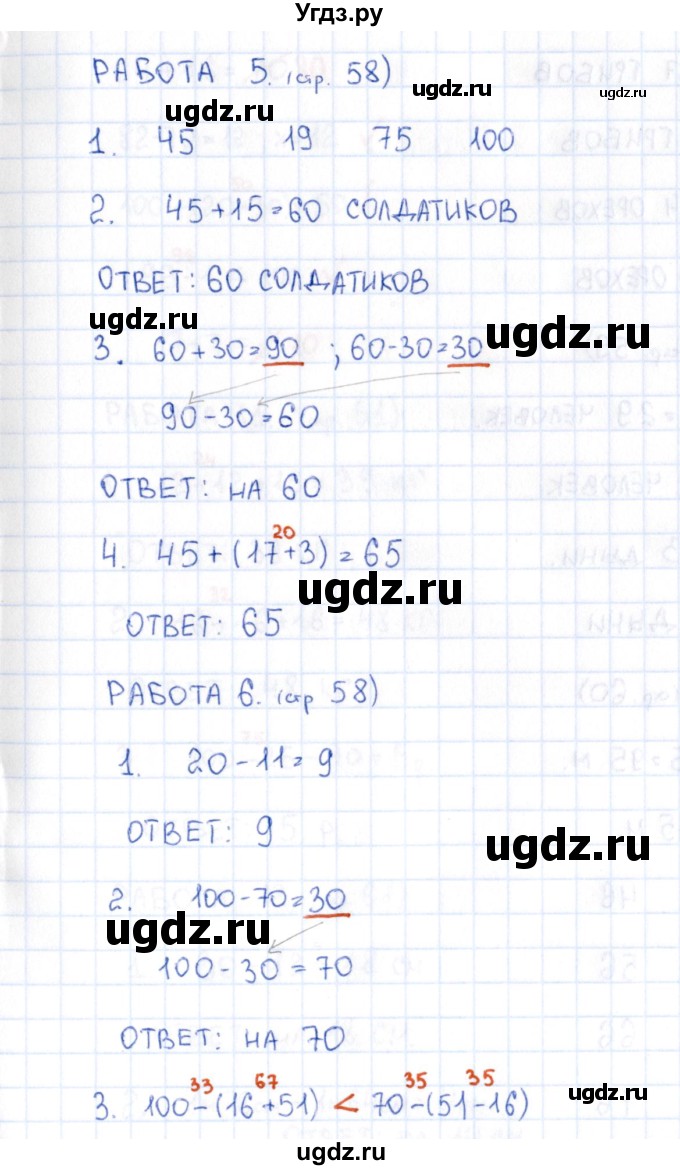 Угдз.ру
РАБОТА 5. (стр. 58)
ugdz.ru ugdz.ru ugdz.ru
1. 45 19 75 100
2. 45+15=60 СОЛДАТИКОВ
ОТВЕТ: 60 СОЛДАТИКОВ
ugdz.ru ugdz.ru
3. 60+30=90 ; 60-30=30
90-30=60
ОТВЕТ: НА 60
20
4. 45+(17+3)=65
ugdz.ru
ОТВЕТ: 65
РАБОТА 6. (стр 58)
1. 20-11=9
ОТВЕТ: 9
ugdz.ru
2. 100-70=30
ugdz.ru
100-30=70
ОТВЕТ: НА 70
33 67 35 35
3. 100-(16+51) < 70-(51-16)
ugdz.ru